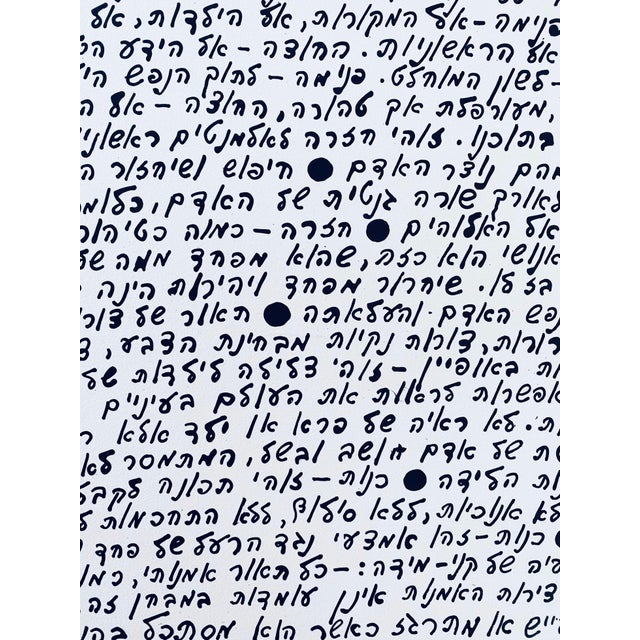 פנימה – אל המקורות, אל הילדות, אל
אל הראשוניות. החוצה – אל הידע ה
לשון המוחלט. פנימה – לתוך הנפש הי
מעורפלת אך טהורה, החוצה – אל ה
בתוכנו. זוהי חזרה לאלמנטים ראשוני
מהם נוצר האדם ● חיפוש ושיחזור ה
לאורך שורה גנטית של האדם, כלומ
אל האלוהים ● חזרה – כמוה כטיהור
אנושי הוא כזה, שהוא מפחד ממה של
בז לו. שיחרור מפחד ויהירות הינה
נפש האדם והעלאתה ● תאור של צור
רורות, צורות נקיות מבחינת הצבע, צ
ות באופיין – זוהי צלילה לילדות של
אפשרות לראות את העולם בעיניים
ת. לא ראיה של פרא או ילד אלא ר
ת של אדם חושב ובשל, המתמסר לא
ות הלידה ● כנות – זוהי תכונה לקבל
לא אנוכיות, ללא סילוף, ללא התחכמות ל
כנות – זהו אמצעי נגד הרעל של פחד ו
עיה של קני-מידה: – כל תאור אמנותי, כמו
צירות האמנות אינן עומדות במבחן זה.
יש או מתרגז כאשר הוא מסתכל בהן